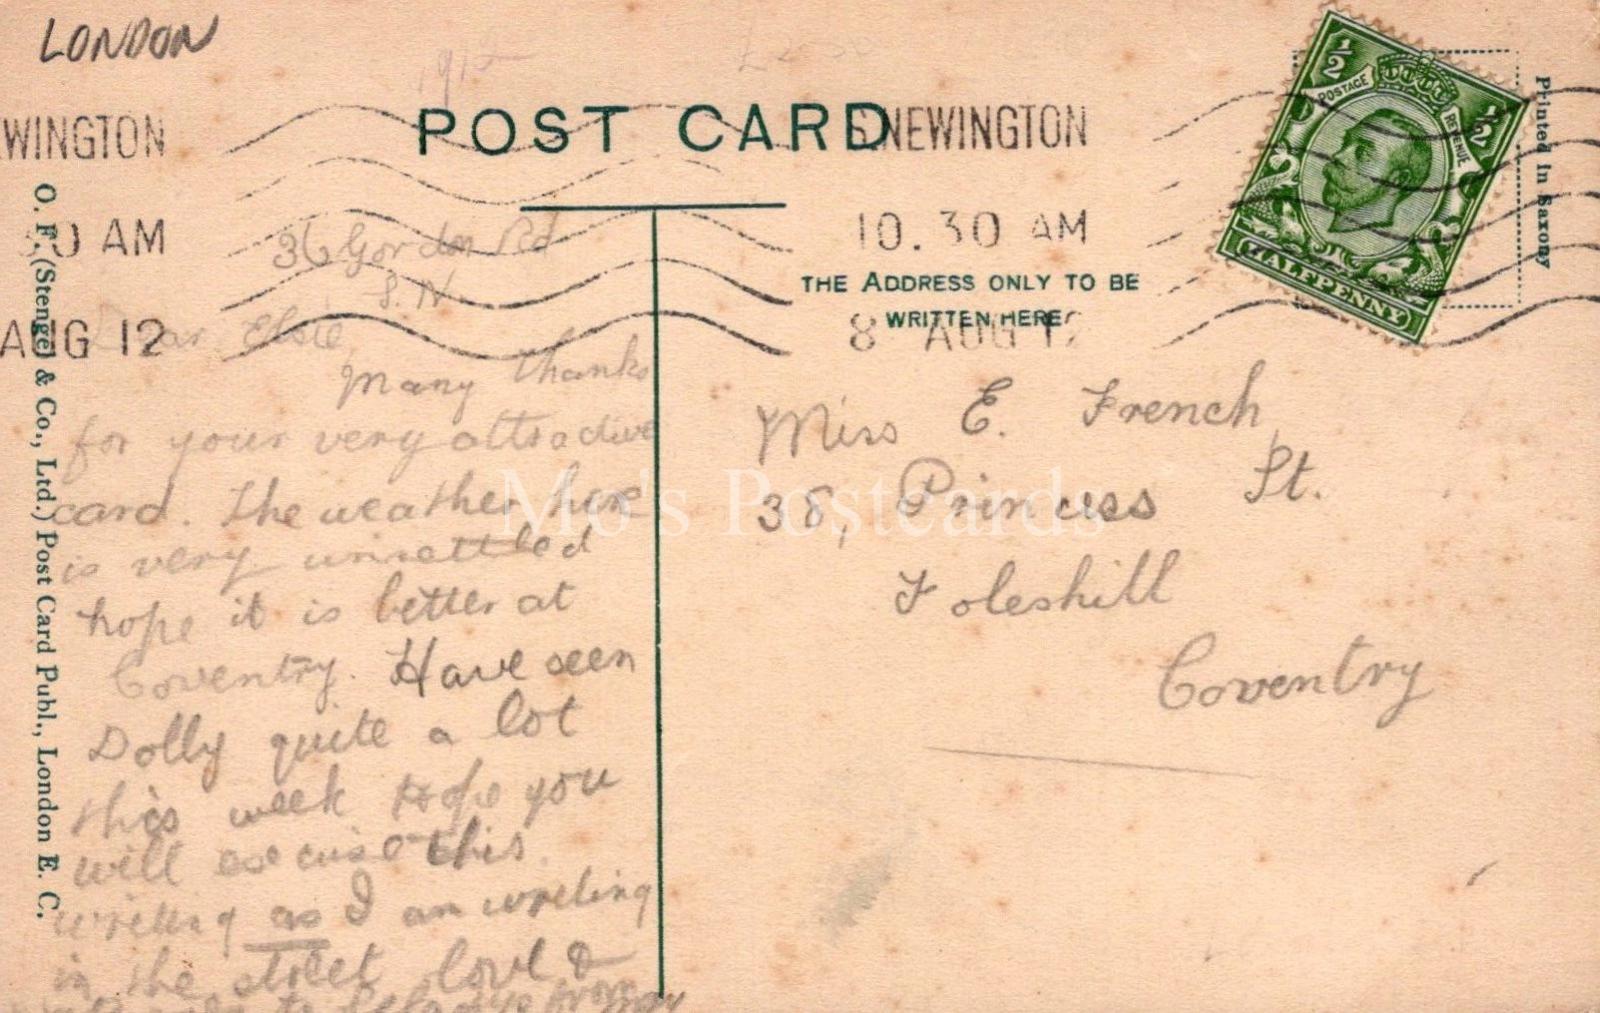 LONDON
1912
POST CARD
WINGTON
S. NEWINGTON
0 AM
10. 30 AM
AUG 12
8 AUG 12
½ ½
POSTAGE REVENUE
HALFPENNY
Printed in Saxony
THE ADDRESS ONLY TO BE
WRITTEN HERE
O. F. (Stengel & Co., Ltd.) Post Card Publ., London E. C.
36 Gordon Rd
S. N.
Dear Elsie,
Many thanks
for your very attractive
card. The weather here
is very unsettled
hope it is better at
Coventry. Have seen
Dolly quite a lot
this week Hope you
will excuse this
writing as I am writing
in the street love &
to from
Miss E. French,
38, Princess St.
Foleshill
Coventry
Mo's Postcards